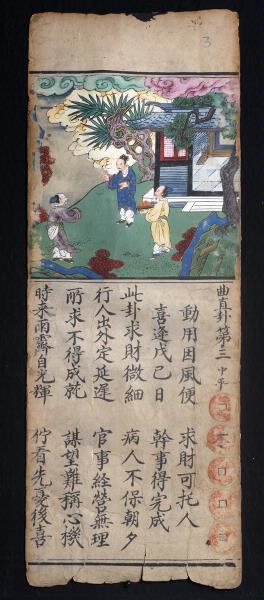 3
曲直卦第三 中平
動用因風便 求財可托人
喜逢戊己日 幹事得完成
此卦求財微細 病人不保朝夕
行人出外定延遲 官事經營無理
所求不得成就 謀望難稱心機
時来雨霽自光輝 佇看先憂後喜